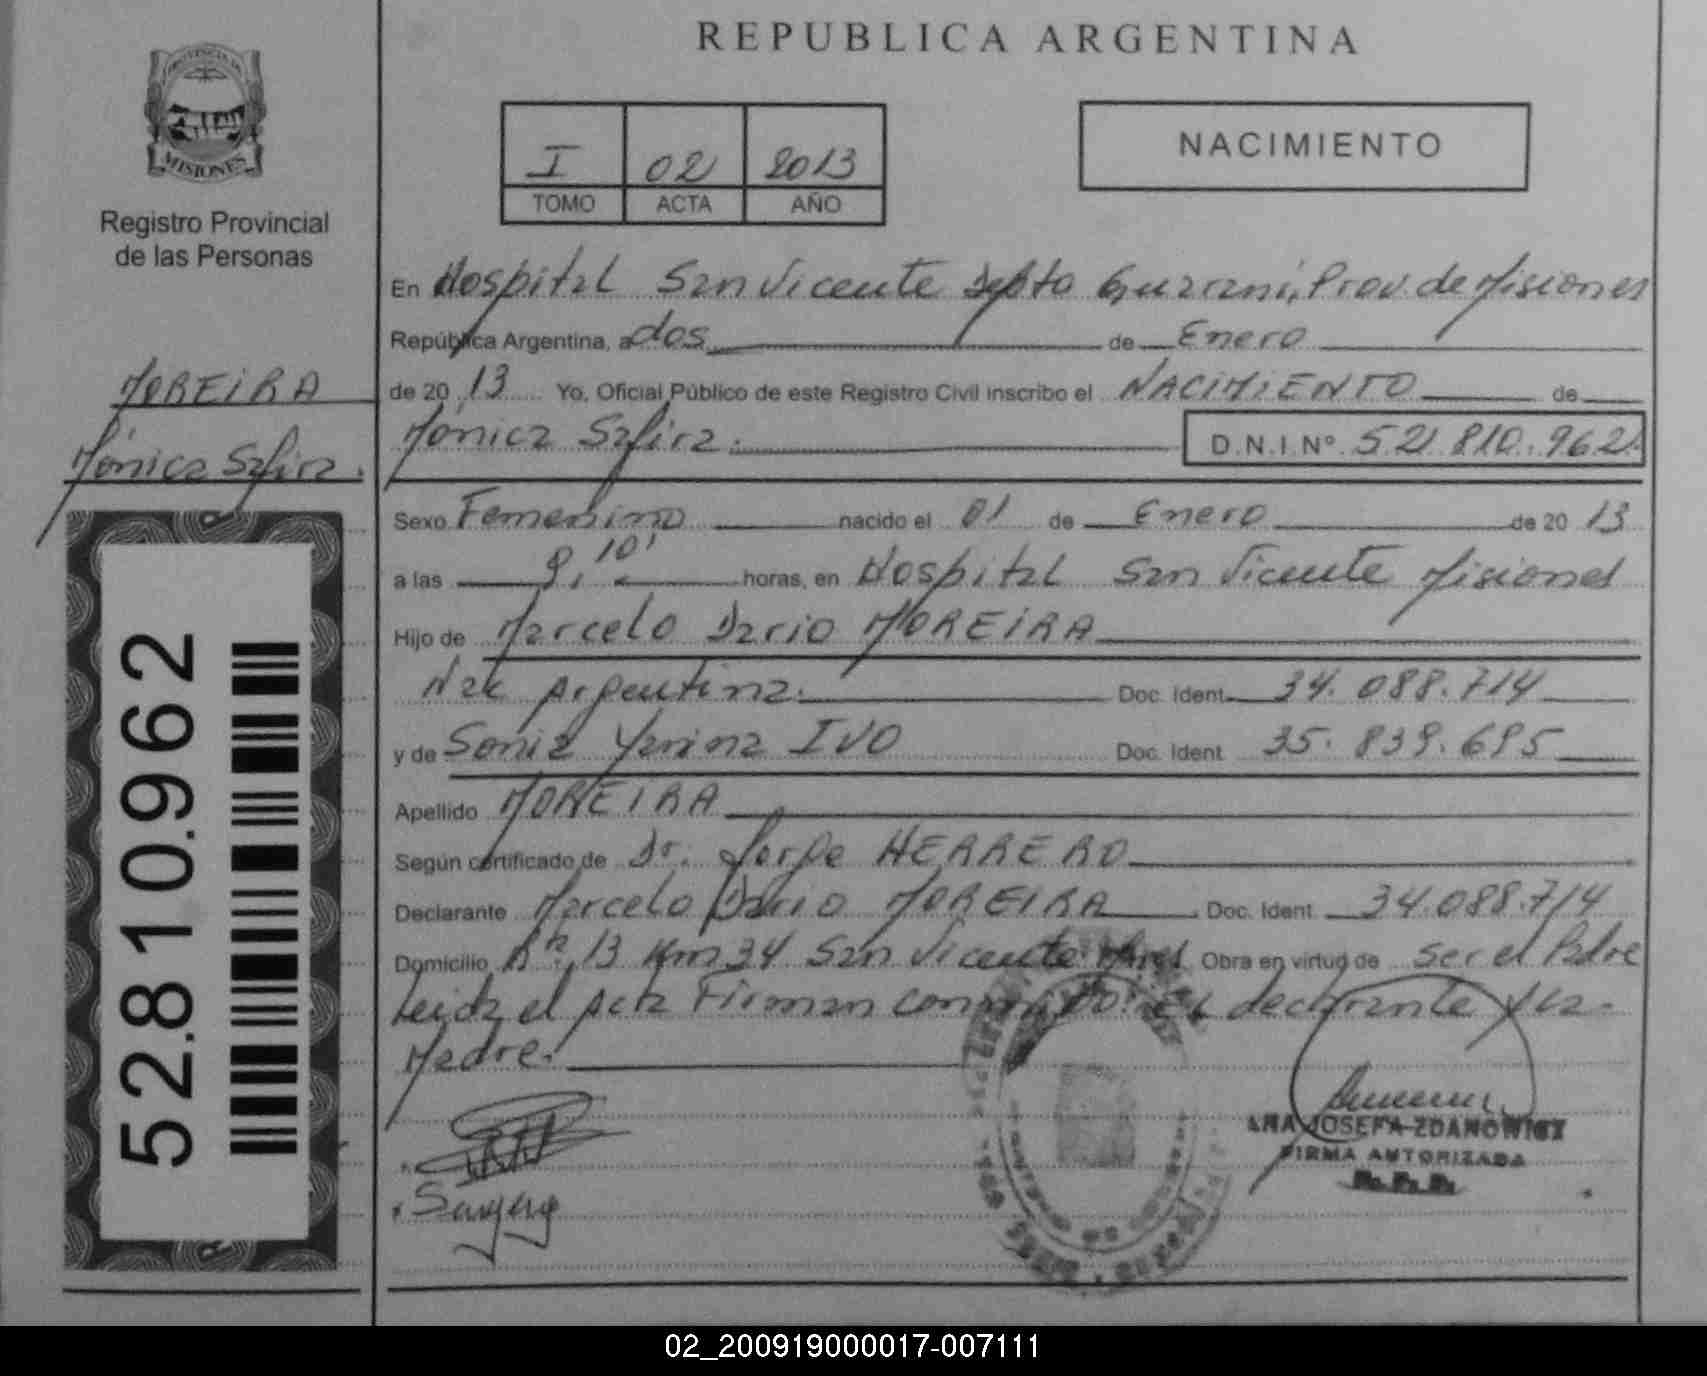 REPUBLICA ARGENTINA
PROVINCIA DE
MISIONES
Registro Provincial
de las Personas
I 02 2013
TOMO ACTA AÑO
NACIMIENTO
En Hospital San Vicente Depto Guarani, Prov. de Misiones
República Argentina, a dos de Enero
de 20 13 Yo, Oficial Público de este Registro Civil inscribo el NACIMIENTO de
Mónica Safira. D.N.I.Nº 52.810.962.
MOREIRA
Mónica Safira.
52.810.962
Sexo Femenino nacido el 01 de Enero de 20 13
a las 9,10' horas, en Hospital San Vicente Misiones
Hijo de Marcelo Dario MOREIRA
Nac Argentina. Doc. Ident. 34.088.714
y de Sonia Yanina IVO Doc. Ident. 35.839.695
Apellido MOREIRA
Según certificado de Dr. Jorge HERRERO
Declarante Marcelo Dario MOREIRA Doc. Ident. 34.088.714
Domicilio Rª 13 Km 34 San Vicente Mnes Obra en virtud de ser el Padre
Leida el Acta Firman conmigo: El declarante y la
Madre.
ANA JOSEFA ZDANOWICZ
FIRMA AUTORIZADA
R. P. P.
02_200919000017-007111